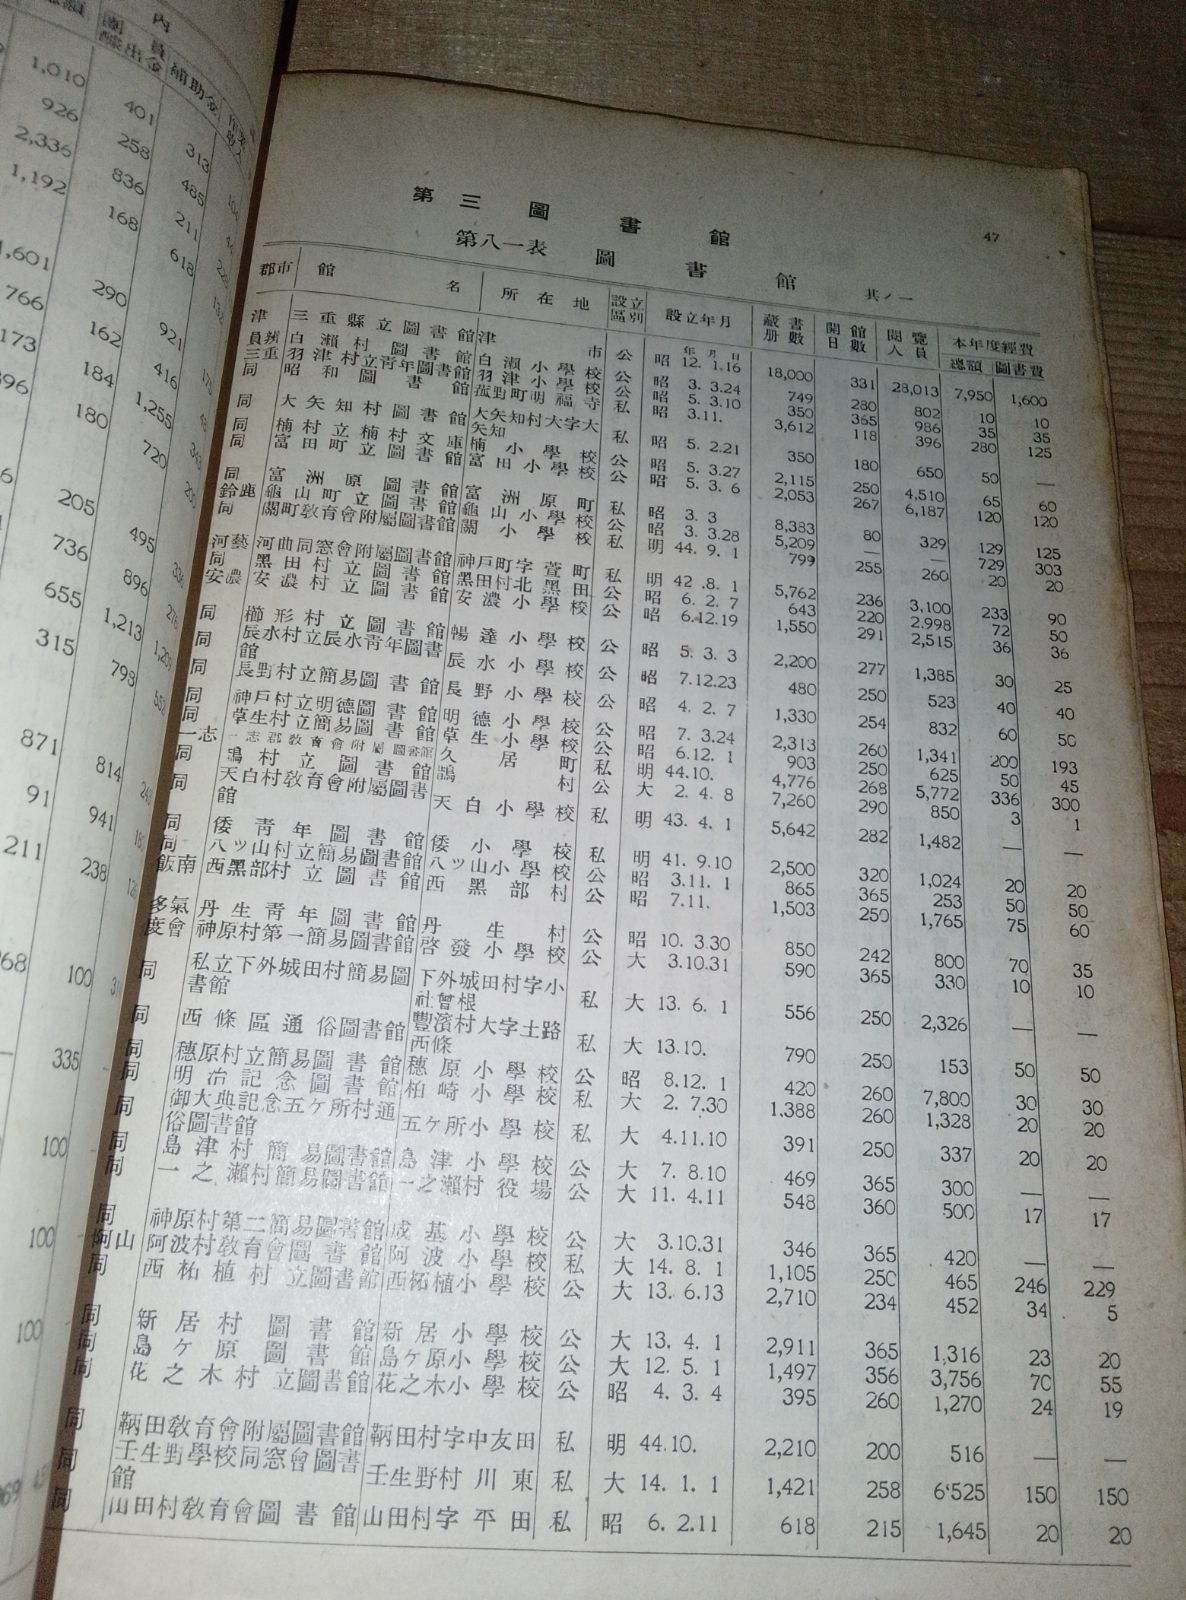 内
補助金
1,010
926
2,336
1,192
401
258
836
168
313
485
211
618
1,601
766
173
396
290
162
184
180
921
416
1,255
720
205
736
655
315
495
896
1,213
793
871
91
211
814
941
238
968
100
335
100
100
100
47
第三 圖書館
第八一表 圖書館 其ノ一
郡市 館名 所在地 設立區別 設立年月 藏書册數 開館日數 閱覽人員 本年度經費
總額 圖書費
年 月 日
津 三重縣立圖書館 津市 公 昭 12. 1.16 18,000 331 28,013 7,950 1,600
員辨 白瀨村圖書館 白瀨小學校 公 昭 3. 3.24 749 280 802 10 10
三重 羽津村立靑年圖書館 羽津小學校 公 昭 5. 3.10 350 365 986 35 35
同 昭和圖書館 菰野町明福寺 私 昭 3.11. 3,612 118 396 280 125
同 大矢知村圖書館 大矢知村大字大矢知 私 昭 5. 2.21 350 180 650 50 —
同 楠村立楠村文庫 楠小學校 公 昭 5. 3.27 2,115 250 4,510 65 60
同 富田町立圖書館 富田小學校 公 昭 5. 3. 6 2,053 267 6,187 120 120
同 富洲原圖書館 富洲原町 私 昭 3. 3 8,383 80 329 129 125
鈴鹿 龜山町立圖書館 龜山小學校 公 昭 3. 3.28 5,209 — — 729 303
同 關町敎育會附屬圖書館 關小學校 私 明 44. 9. 1 799 255 260 20 20
河藝 河曲同窓會附屬圖書館 神戸町字萱町 私 明 42 .8. 1 5,762 236 3,100 233 90
同 黑田村立圖書館 黑田村北黑田 公 昭 6. 2. 7 643 220 2,998 72 50
安濃 安濃村立圖書館 安濃小學校 公 昭 6.12.19 1,550 291 2,515 36 36
同 櫛形村立圖書館 暢達小學校 公 昭 5. 3. 3 2,200 277 1,385 30 25
同 辰水村立辰水靑年圖書館 辰水小學校 公 昭 7.12.23 480 250 523 40 40
同 長野村立簡易圖書館 長野小學校 公 昭 4. 2. 7 1,330 254 832 60 50
同 神戸村立明德圖書館 明德小學校 公 昭 7. 3.24 2,313 260 1,341 200 193
同 草生村立簡易圖書館 草生小學校 公 昭 6.12. 1 903 250 625 50 45
一志 一志郡敎育會附屬圖書館 久居町 私 明 44.10. 4,776 268 5,772 336 300
同 鵲村立圖書館 鵲村 公 大 2. 4. 8 7,260 290 850 3 1
同 天白村敎育會附屬圖書館 天白小學校 私 明 43. 4. 1 5,642 282 1,482 — —
同 倭靑年圖書館 倭小學校 私 明 41. 9.10 2,500 320 1,024 20 20
同 八ッ山村立簡易圖書館 八ッ山小學校 公 昭 3.11. 1 865 365 253 50 50
飯南 西黑部村立圖書館 西黑部村 公 昭 7.11. 1,503 250 1,765 75 60
多氣 丹生靑年圖書館 丹生村 公 昭 10. 3.30 850 242 800 70 35
度會 神原村第一簡易圖書館 啓發小學校 公 大 3.10.31 590 365 330 10 10
同 私立下外城田村簡易圖書館 下外城田村字小社曾根 私 大 13. 6. 1 556 250 2,326 — —
同 西條區通俗圖書館 豐濱村大字土路西條 私 大 13.10. 790 250 153 50 50
同 穗原村立簡易圖書館 穗原小學校 公 昭 8.12. 1 420 260 7,800 30 30
同 明治記念圖書館 柏崎小學校 私 大 2. 7.30 1,388 260 1,328 20 20
同 御大典記念五ケ所村通俗圖書館 五ケ所小學校 私 大 4.11.10 391 250 337 20 20
同 島津村簡易圖書館 島津小學校 公 大 7. 8.10 469 365 300 — —
同 一之瀨村簡易圖書館 一之瀨村役場 公 大 11. 4.11 548 360 500 17 17
同 神原村第二簡易圖書館 成基小學校 公 大 3.10.31 346 365 420 — —
阿山 阿波村敎育會圖書館 阿波小學校 私 大 14. 8. 1 1,105 250 465 246 229
同 西柘植村立圖書館 西柘植小學校 公 大 13. 6.13 2,710 234 452 34 5
同 新居村圖書館 新居小學校 公 大 13. 4. 1 2,911 365 1,316 23 20
同 島ケ原圖書館 島ケ原小學校 公 大 12. 5. 1 1,497 356 3,756 70 55
同 花之木村立圖書館 花之木小學校 公 昭 4. 3. 4 395 260 1,270 24 19
同 鞆田敎育會附屬圖書館 鞆田村字中友田 私 明 44.10. 2,210 200 516 — —
同 壬生野學校同窓會圖書館 壬生野村川東 私 大 14. 1. 1 1,421 258 6,525 150 150
同 山田村敎育會圖書館 山田村字平田 私 昭 6. 2.11 618 215 1,645 20 20